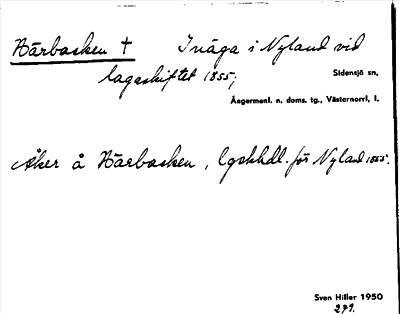 Bärbacken † Inäga i Nyland vid
lagaskiftet 1855;
Sidensjö sn,
Ångermanl. n. doms. tg., Västernorrl. l.
Åker å Bärbacken, lgskhdl. för Nyland 1855.
Sven Hiller 1950
279.